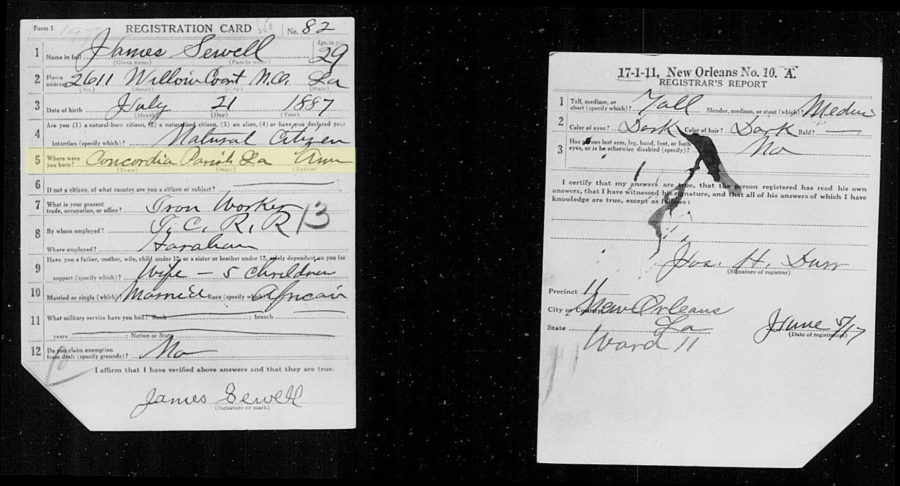 Form 1 REGISTRATION CARD No. 82
1 Name in full James Sewell Age, in yrs. 29
(Given name) (Family name)
2 Home address 2611 Willow Court N.O. La
(No.) (Street) (City) (State)
3 Date of birth July 21 1887
(Month) (Day) (Year)
4 Are you (1) a natural-born citizen, (2) a naturalized citizen, (3) an alien, (4) or have you declared your
intention (specify which)? Natural Citizen
5 Where were you born? Concordia Parish La Am
(Town) (State) (Nation)
6 If not a citizen, of what country are you a citizen or subject?
7 What is your present trade, occupation, or office? Iron Worker 13
8 By whom employed? I. C. R. R
Where employed? Harahan
9 Have you a father, mother, wife, child under 12, or a sister or brother under 12, solely dependent on you for
support (specify which)? Wife – 5 Children
10 Married or single (which)? Married Race (specify which)? African
11 What military service have you had? Rank branch
years Nation or State
12 Do you claim exemption from draft (specify grounds)? No
I affirm that I have verified above answers and that they are true.
James Sewell
(Signature or mark)
17-1-11, New Orleans No. 10. "A"
REGISTRAR'S REPORT
1 Tall, medium, or short (specify which)? Tall Slender, medium, or stout (which)? Medium
2 Color of eyes? Dark Color of hair? Dark Bald? —
3 Has person lost arm, leg, hand, foot, or both eyes, or is he otherwise disabled (specify)? No
I certify that my answers are true, that the person registered has read his own
answers, that I have witnessed his signature, and that all of his answers of which I have
knowledge are true, except as follows:
Jos. H. Durr
(Signature of registrar)
Precinct 11
City or County New Orleans
State La June 5/17
(Date of registration)
Ward 11